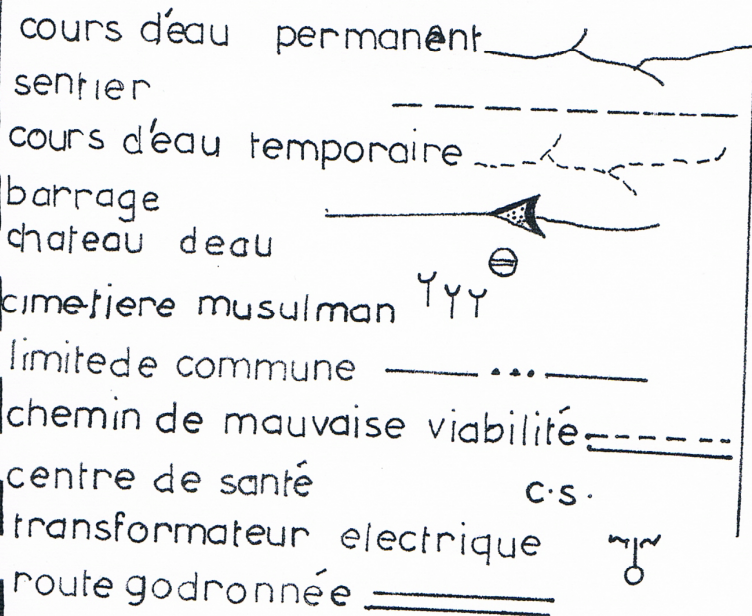 cours d'eau permanent
sentier
cours d'eau temporaire
barrage
chateau deau
cimetiere musulman
limitede commune
chemin de mauvaise viabilité
centre de santé C.S.
transformateur electrique
route godronnée